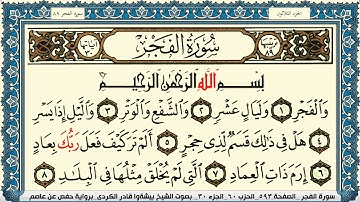 الجزء الثلاثون
سورة الفجر ٨٩
ترتيبها ٨٩ سُورَةُ الفَجْرِ آياتها ٣٠
بِسْمِ اللَّهِ الرَّحْمَٰنِ الرَّحِيمِ
وَالْفَجْرِ ١ وَلَيَالٍ عَشْرٍ ٢ وَالشَّفْعِ وَالْوَتْرِ ٣ وَاللَّيْلِ إِذَا يَسْرِ
٤ هَلْ فِي ذَٰلِكَ قَسَمٌ لِّذِي حِجْرٍ ٥ أَلَمْ تَرَ كَيْفَ فَعَلَ رَبُّكَ بِعَادٍ
٦ إِرَمَ ذَاتِ الْعِمَادِ ٧ الَّتِي لَمْ يُخْلَقْ مِثْلُهَا فِي الْبِلَادِ ٨
سورة الفجر الصفحة ٥٩٣ الحزب ٦٠ الجزء ٣٠ بصوت الشيخ بيشةوا قادر الكردي برواية حفص عن عاصم